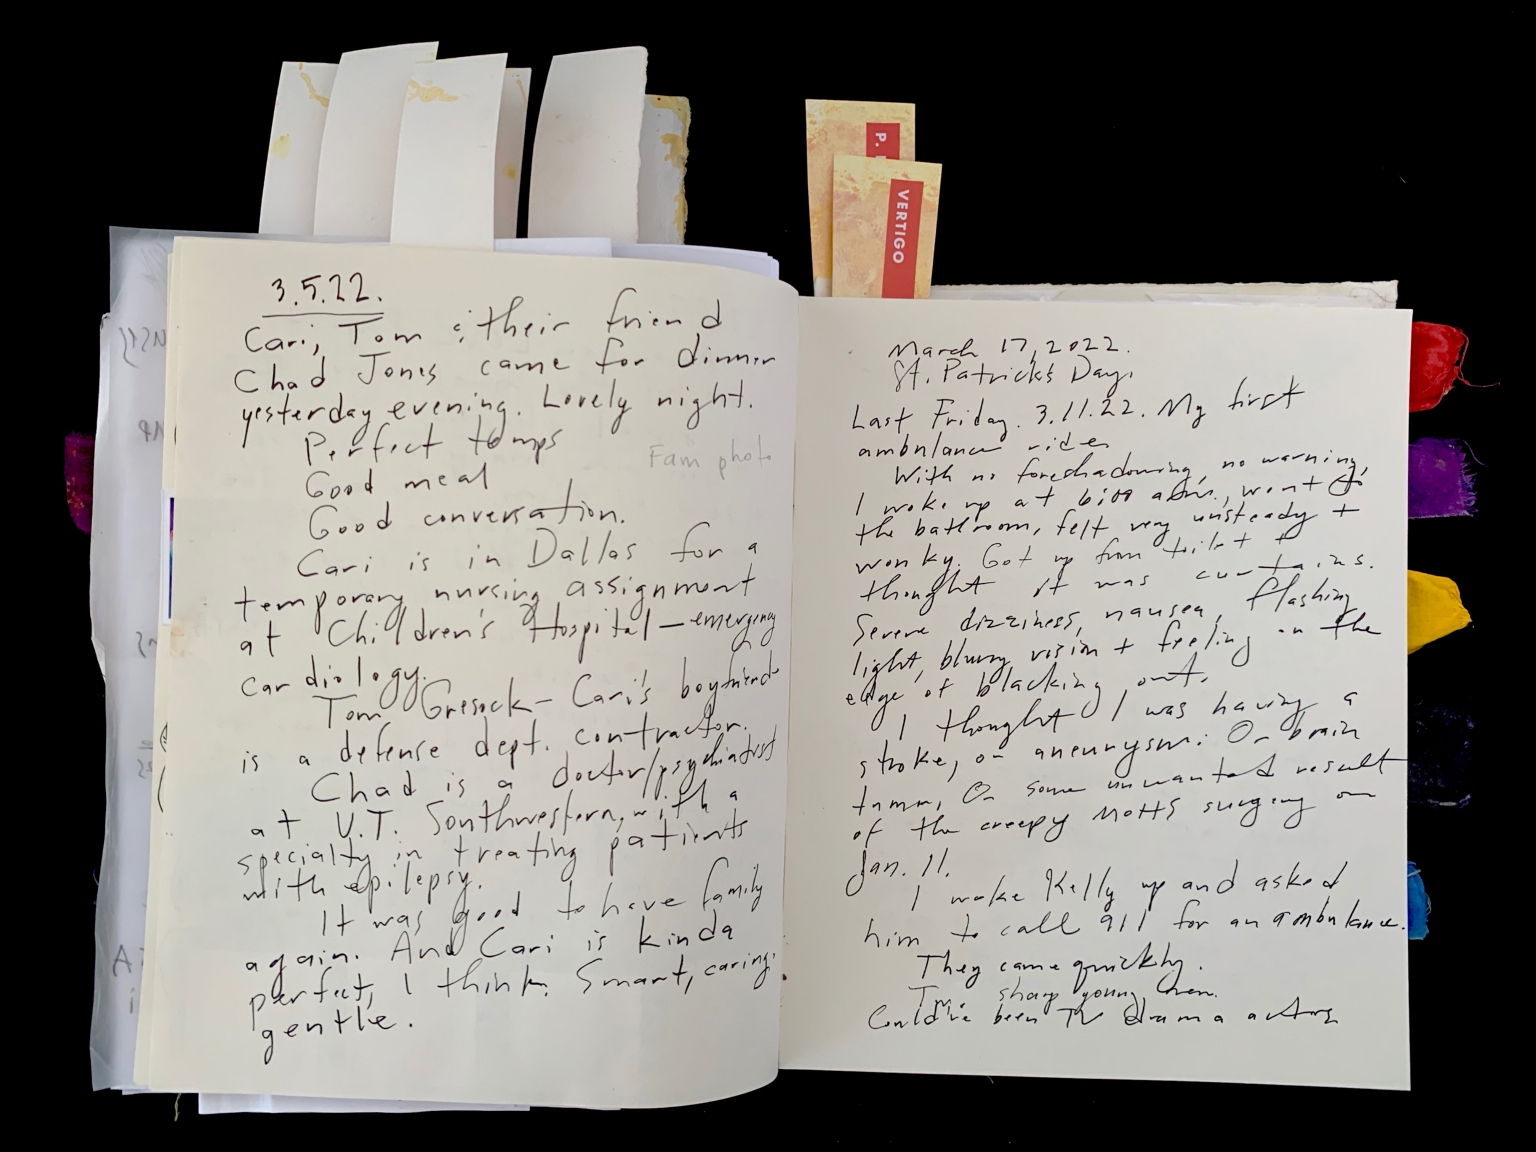 P.
VERTIGO
3.5.22.
Cari, Tom & their friend
Chad Jones came for dinner
yesterday evening. Lovely night.
Perfect temps
Fam photo
Good meal
Good conversation.
Cari is in Dallas for a
temporary nursing assignment
at Children's Hospital – emergency
cardiology.
Tom Gresock – Cari's boyfriend
is a defense dept. contractor.
Chad is a doctor/psychiatrist
at U.T. Southwestern, with a
specialty in treating patients
with epilepsy.
It was good to have family
again. And Cari is kinda
perfect, I think. Smart, caring,
gentle.
March 17, 2022.
St. Patrick's Day.
Last Friday. 3.11.22. My first
ambulance ride.
With no foreshadowing, no warning,
I woke up at 6:00 a.m., went to
the bathroom, felt very unsteady +
wonky. Got up from toilet +
thought it was curtains.
Severe dizziness, nausea, flashing
light, blurry vision + feeling on the
edge of blacking out.
I thought I was having a
stroke, or aneurysm. Or brain
tumor, Or some unwanted result
of the creepy MOHS surgery on
Jan. 11.
I woke Kelly up and asked
him to call 911 for an ambulance.
They came quickly.
Two sharp young men.
Could've been TV drama actors